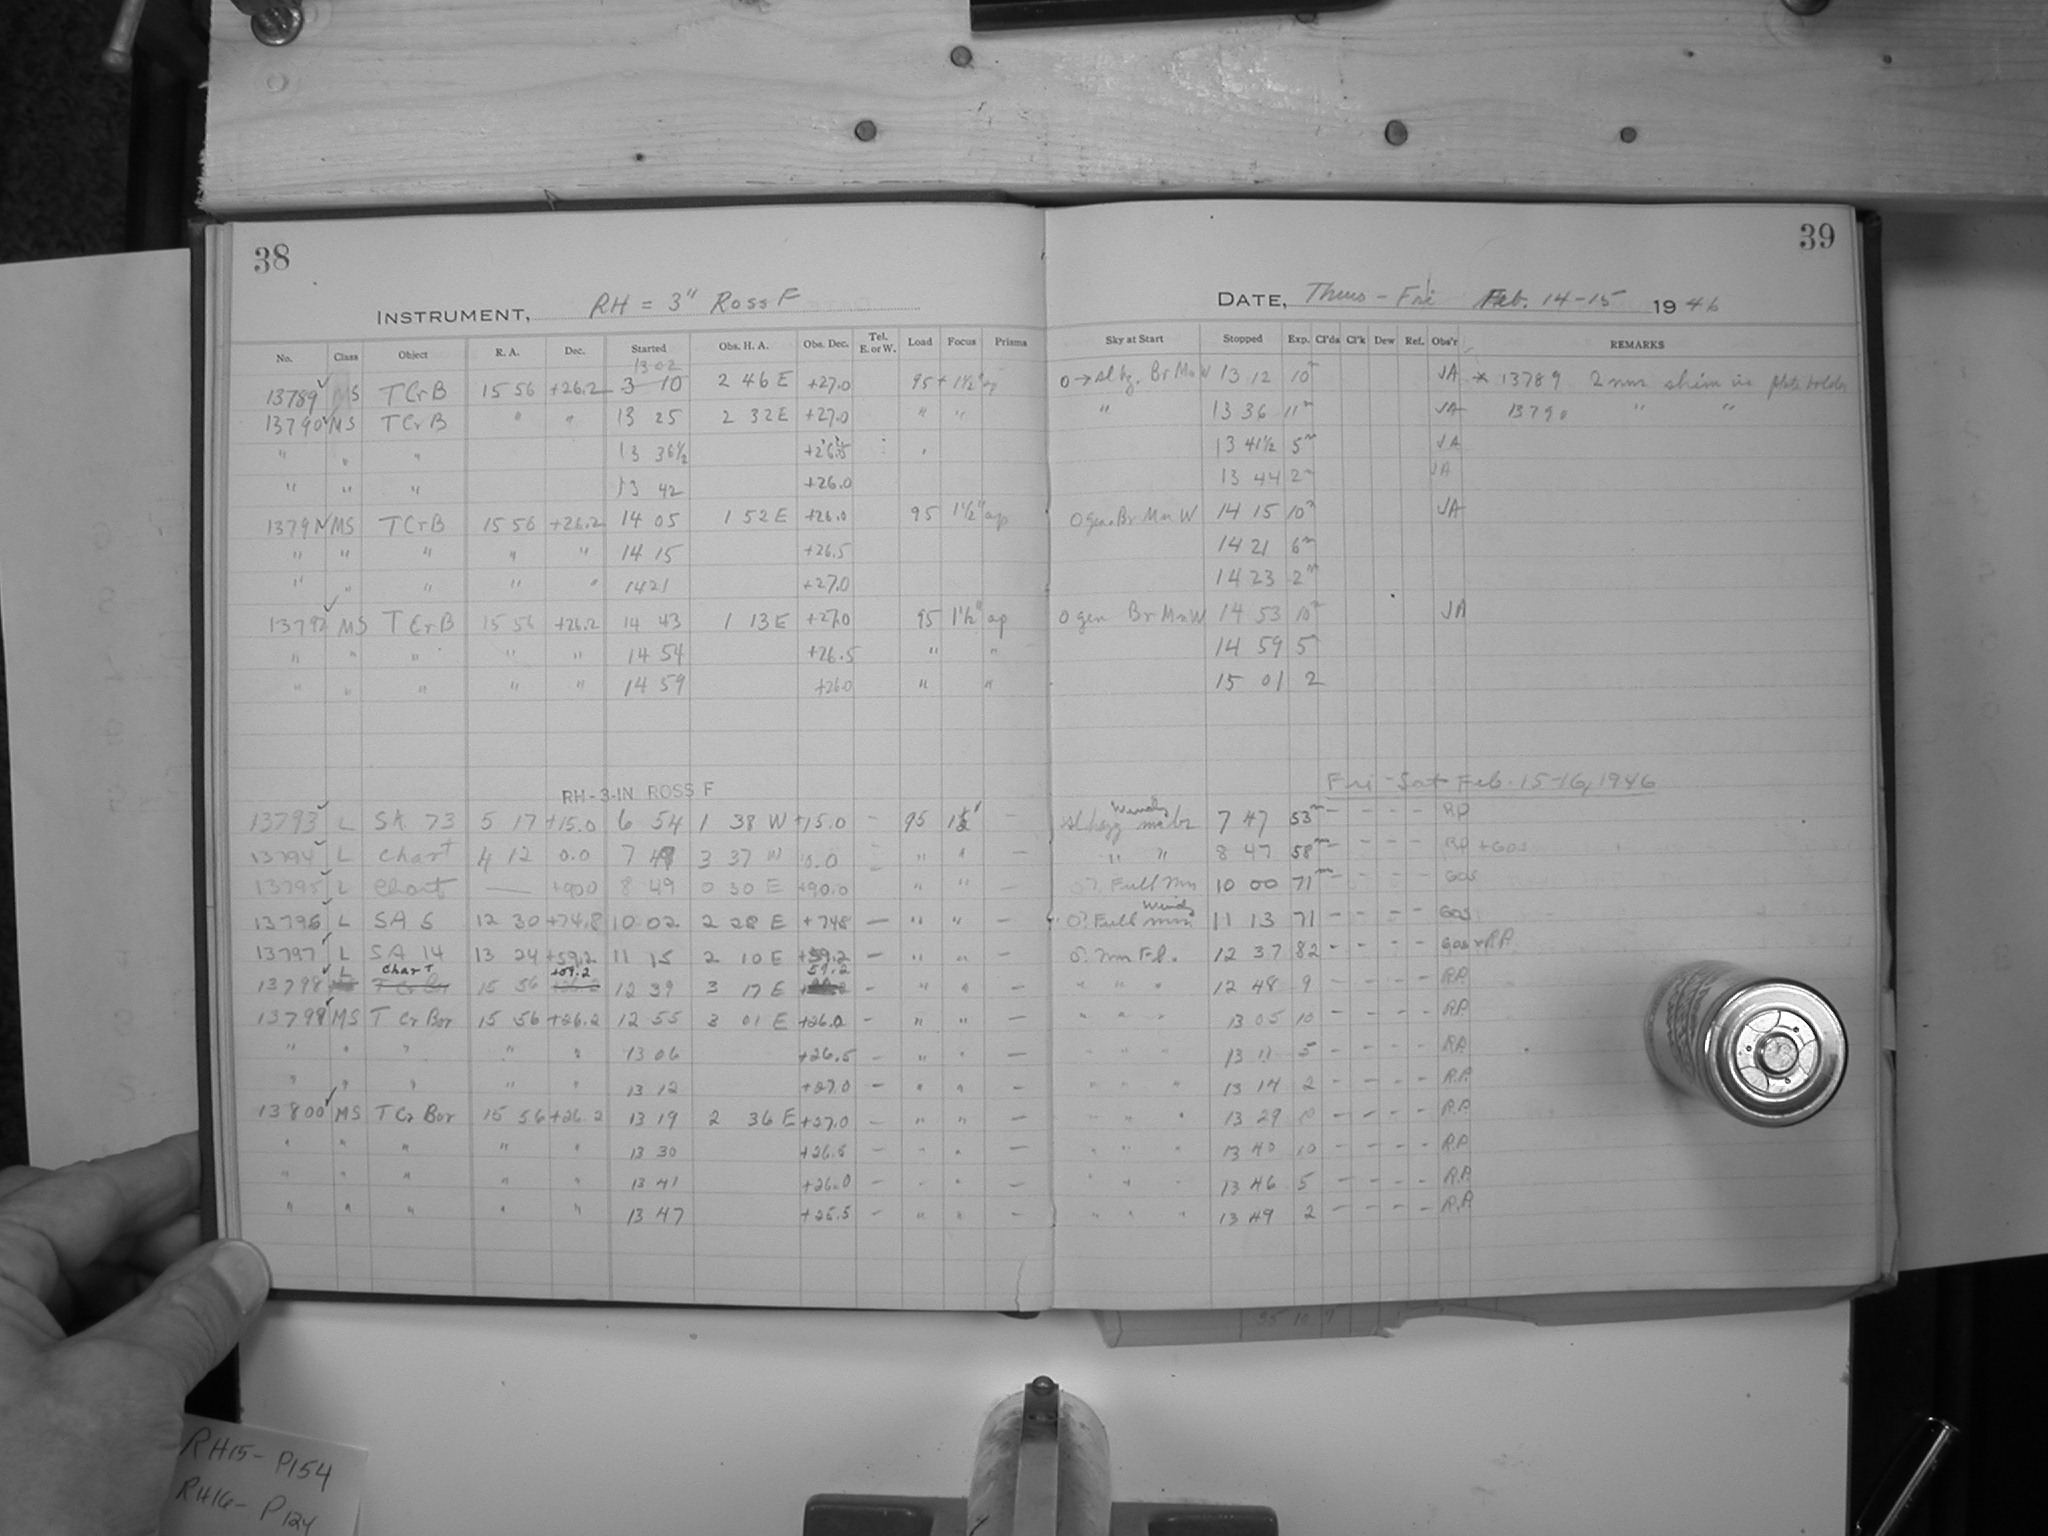 38
INSTRUMENT, RH = 3" Ross F
No. Class Object R. A. Dec. Started Obs. H. A. Obs. Dec. Tel. E. or W. Load Focus Prisms
13 02
13789 MS T Cr B 15 56 +26.2 3 10 2 46 E +27.0 95 + 1½" ap
13790 MS T Cr B " " 13 25 2 32 E +27.0 " "
" " " 13 36½ +26.5 "
" " " 13 42 +26.0
13791 MS T Cr B 15 56 +26.2 14 05 1 52 E +26.0 95 1½" ap
" " " " " 14 15 +26.5
" " " " " 14 21 +27.0
13792 MS T Cr B 15 56 +26.2 14 43 1 13 E +27.0 95 1½" ap
" " " " " 14 54 +26.5 " "
" " " " " 14 59 +26.0 " "
RH-3-IN ROSS F
13793 L SA 73 5 17 +15.0 6 54 1 38 W +15.0 - 95 1½" -
13794 L Chart 4 12 0.0 7 49 3 37 W 0.0 - " " -
13795 L Chart — +90.0 8 49 0 30 E +90.0 " " -
13796 L SA 5 12 30 +74.8 10 02 2 28 E +74.8 - " " -
13797 L SA 14 13 24 +59.2 11 15 2 10 E +59.2 - " " -
L Chart +59.2 59.2
13798 T Cr Br 15 56 +26.2 12 39 3 17 E - " " -
13799 MS T Cr Bor 15 56 +26.2 12 55 3 01 E +26.0 - " " -
" " " " " 13 06 +26.5 - " " -
" " " " " 13 12 +27.0 - " " -
13800 MS T Cr Bor 15 56 +26.2 13 19 2 36 E +27.0 - " " -
" " " " " 13 30 +26.5 - " " -
" " " " " 13 41 +26.0 - " " -
" " " " " 13 47 +25.5 - " " -
39
DATE, Thurs - Fri Feb. 14-15 1946
Sky at Start Stopped Exp. Cl'ds Cl'k Dew Ref. Obs'r REMARKS
0 → slhz. Br Mn W 13 12 10m JA * 13789 2 mm shim in plate holder
" 13 36 11m JA 13790 " "
13 41½ 5m JA
13 44 2m JA
0 gen Br Mn W 14 15 10m JA
14 21 6m
14 23 2m
0 gen Br Mn W 14 53 10m JA
14 59 5
15 01 2
Fri - Sat Feb. 15-16, 1946
Windy
Sl hazy 7 47 53m - - - - RP
" " 8 47 58m - - - - RP + GOS
0? Full Mn 10 00 71m - - - - GOS
Windy
0? Full mn 11 13 71 - - - - GOS
12 37 82 - - - - GOS + RP
" " " 12 48 9 - - - - R.P.
" " " 13 05 10 - - - - R.P.
" " " 13 11 5 - - - - R.P.
" " " 13 14 2 - - - - R.P.
" " " 13 29 10 - - - - R.P.
" " " 13 40 10 - - - - R.P.
" " " 13 46 5 - - - - R.P.
" " " 13 49 2 - - - - R.P.
35 10 7
RH15- P154
RH16- P124